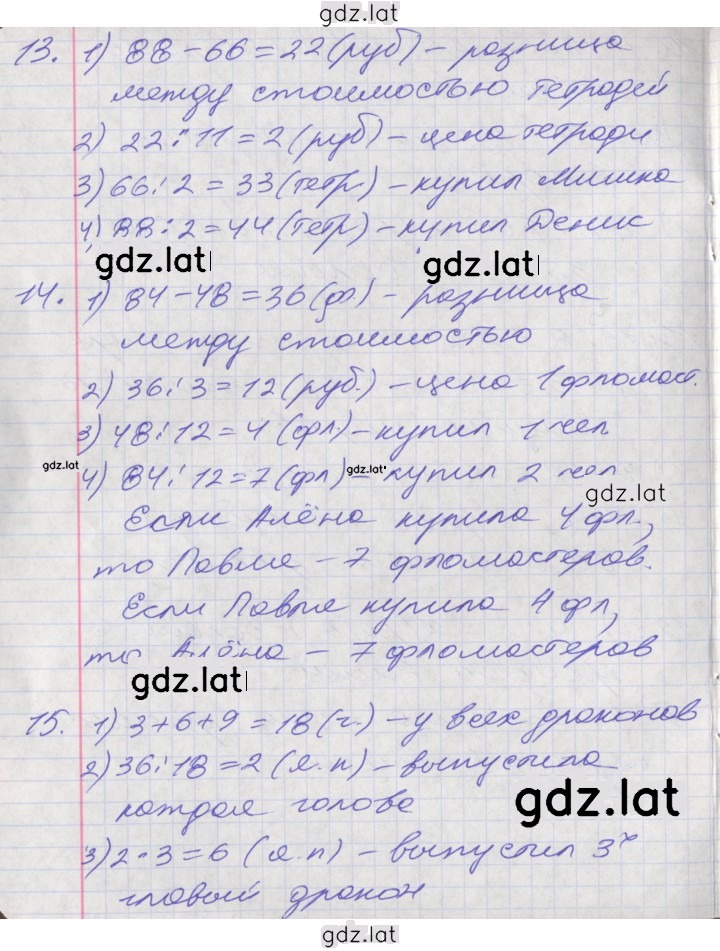 gdz.lat
13. 1) 88 - 66 = 22 (руб) - разница
между стоимостью тетрадей
2) 22 : 11 = 2 (руб) - цена тетради
3) 66 : 2 = 33 (тетр.) - купил Мишка
4) 88 : 2 = 44 (тетр) - купил Денис
gdz.lat gdz.lat
14. 1) 84 - 48 = 36 (ф.) - разница
между стоимостью
2) 36 : 3 = 12 (руб.) - цена 1 фломаст.
3) 48 : 12 = 4 (фл) - купил 1 чел
gdz.lat 4) 84 : 12 = 7 (фл) gdz.lat - купил 2 чел
gdz.lat
Если Алёна купила 4 фл,
то Павле - 7 фломастеров.
Если Павле купила 4 фл,
то Алёна - 7 фломастеров
gdz.lat
15. 1) 3 + 6 + 9 = 18 (г.) - у всех драконов
2) 36 : 18 = 2 (я.п) - выпустила
каждая голова
gdz.lat
3) 2 · 3 = 6 (я.п) - выпустил 3х
главый дракон
gdz.lat